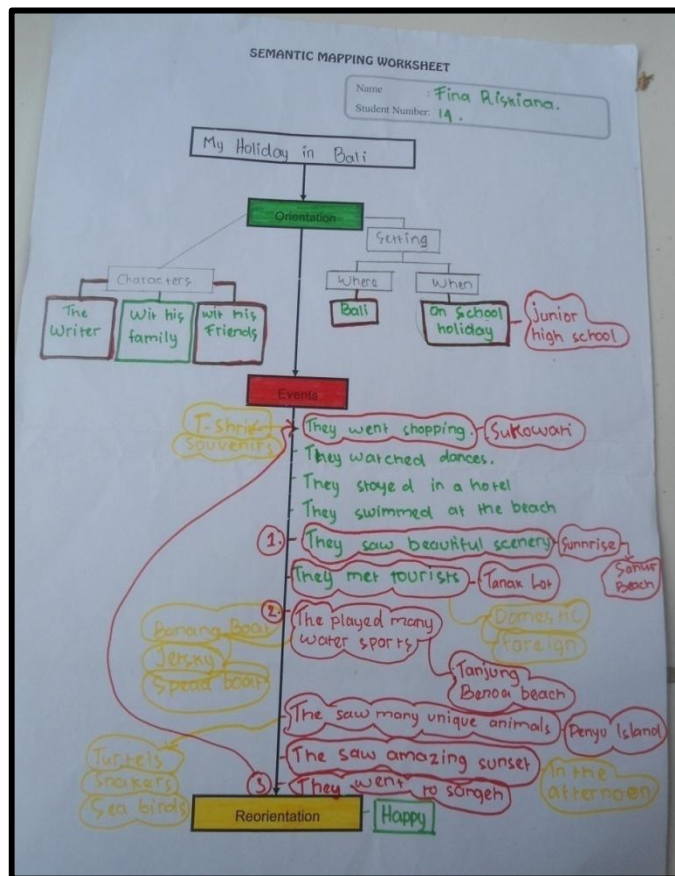 SEMANTIC MAPPING WORKSHEET
Name : Fina Riskiana.
Student Number: 19.
My Holiday in Bali
Orientation
Setting
Characters
Where
When
The Writer
Wit his family
wit his Friends
Bali
On School holiday
junior high school
Events
T-shrit
Souvenirs
They went shopping.
Sukowari
They watched dances.
They stayed in a hotel
They swimmed at the beach
1.
They saw beautiful scenery
Sunnrise
Sanur Beach
They met tourists
Tanak Lot
Domestic
Foreign
2.
The played many water sports
Banang Boat
Jetsky
Spead boat
Tanjung Benoa beach
The saw many unique animals
Penyu Island
Turtels
Snakers
Sea birds
The saw amazing sunset
In the afternoon
3
They went to sangeh
Reorientation
Happy